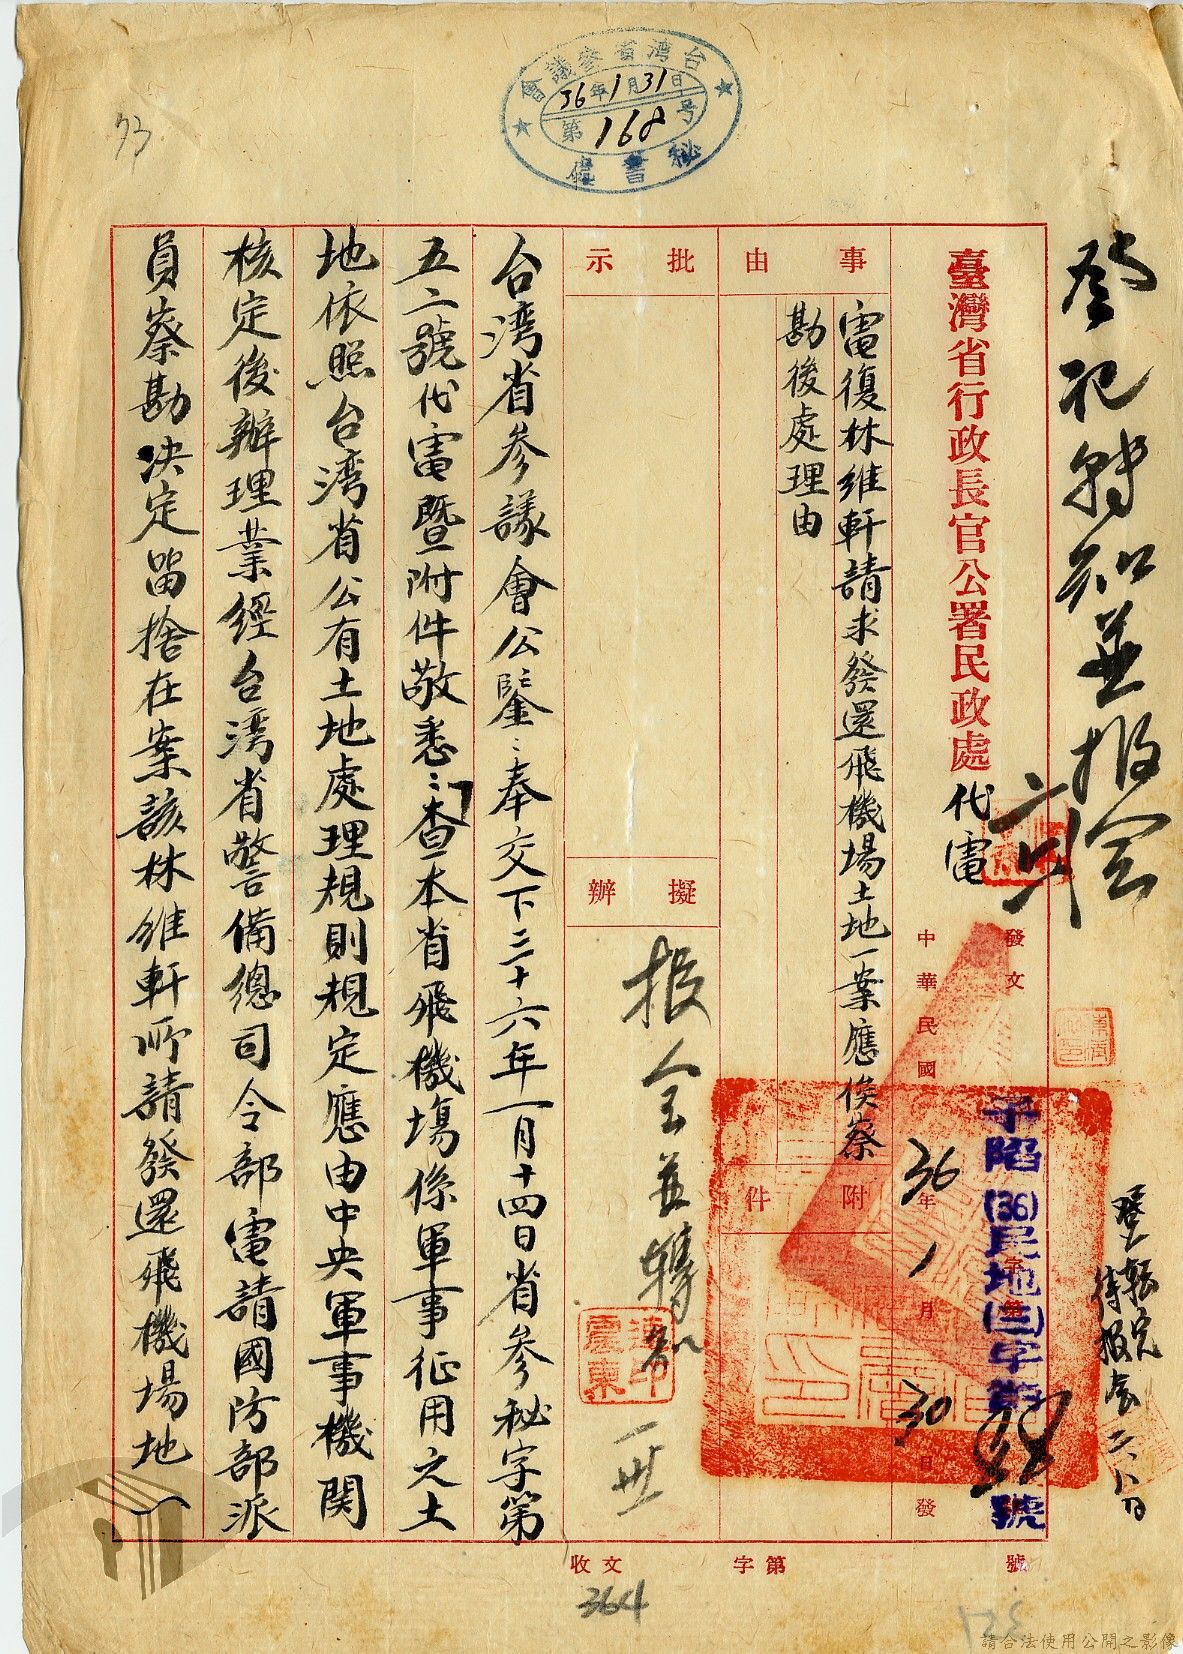 台湾省參議會
36年1月31日
第168号
秘書處
登記轉知並报会
臺灣省行政長官公署民政處代電
發文
中華民國36年1月30日發
子陷(36)民地(三)字第号
號
事由
電復林維軒請求發還飛機場土地一案應俟察
勘後處理由
附件
批示
擬辦
报会並轉知
台湾省参議會公鑒：奉交下三十六年一月十四日省参秘字第
五二號代電暨附件敬悉：查本省飛機場係軍事征用之土
地依照台湾省公有土地處理規則規定應由中央軍事機関
核定後辦理業經台湾省警備總司令部電請國防部派
員察勘決定留捨在案該林維軒所請發還飛機場地一
收文 字第 號
364
73
請合法使用公開之影像